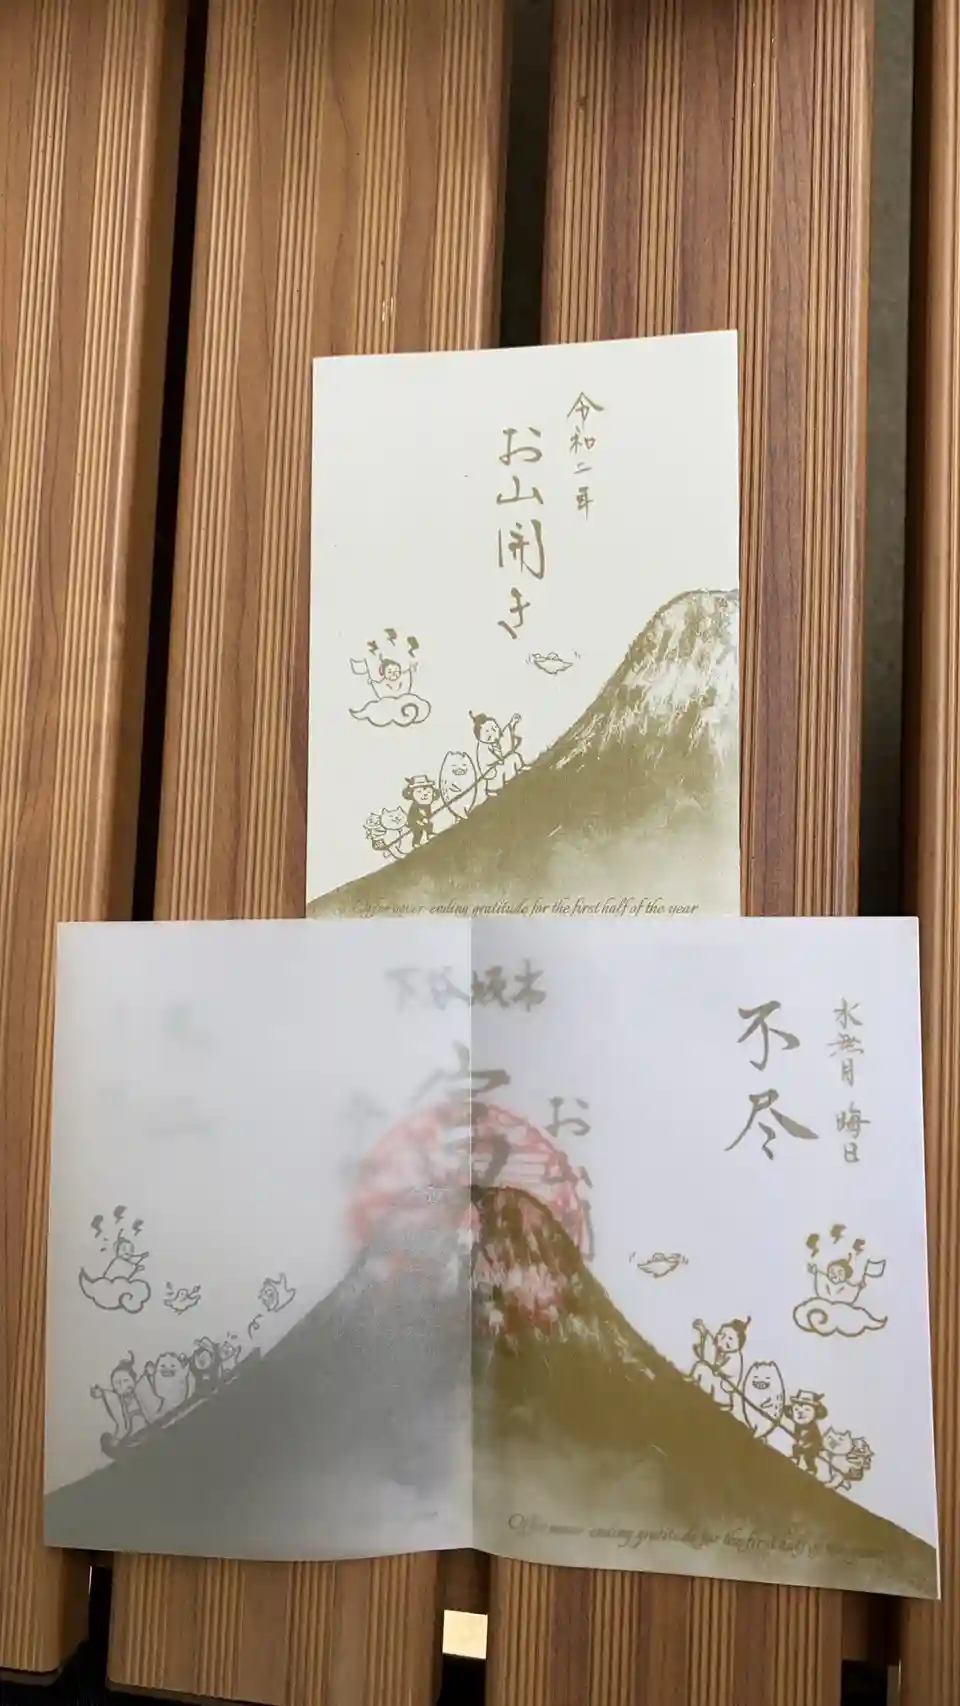 令和二年
お山開き
Offer never-ending gratitude for the first half of the year
下谷坂本
富
お山開
水無月 晦日
不尽
Offer never-ending gratitude for the first half of the year